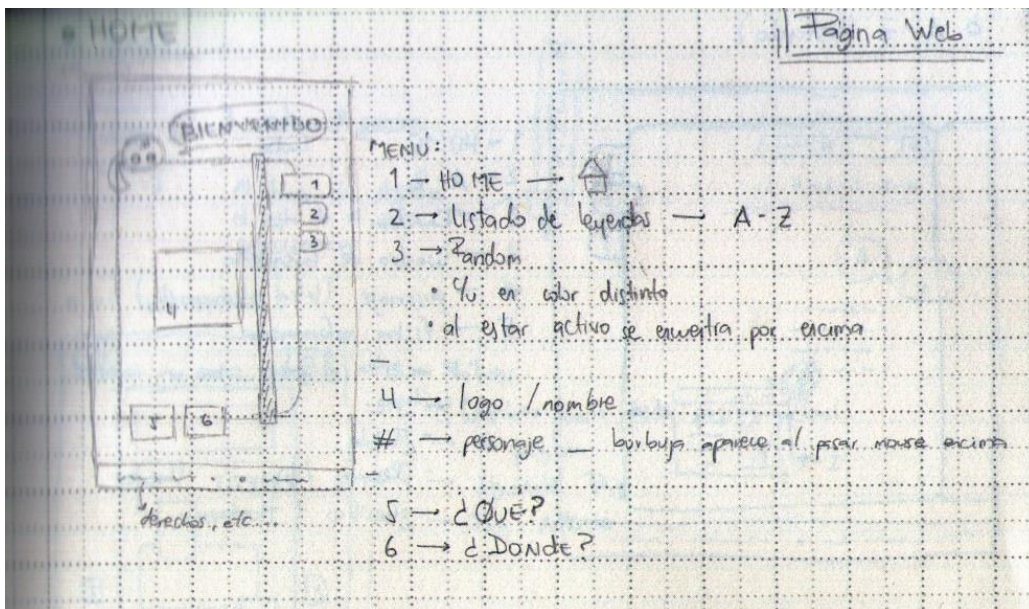 • HOME
Página Web
BIENVENIDO
1
2
3
4
5 6
derechos, etc...
MENÚ:
1 → HOME →
2 → listado de leyendas → A - Z
3 → Random
• c/u en color distinto
• al estar activo se encuentra por encima
4 → logo / nombre
# → personaje _ burbuja aparece al pasar mouse encima
5 → ¿QUÉ?
6 → ¿DONdE?